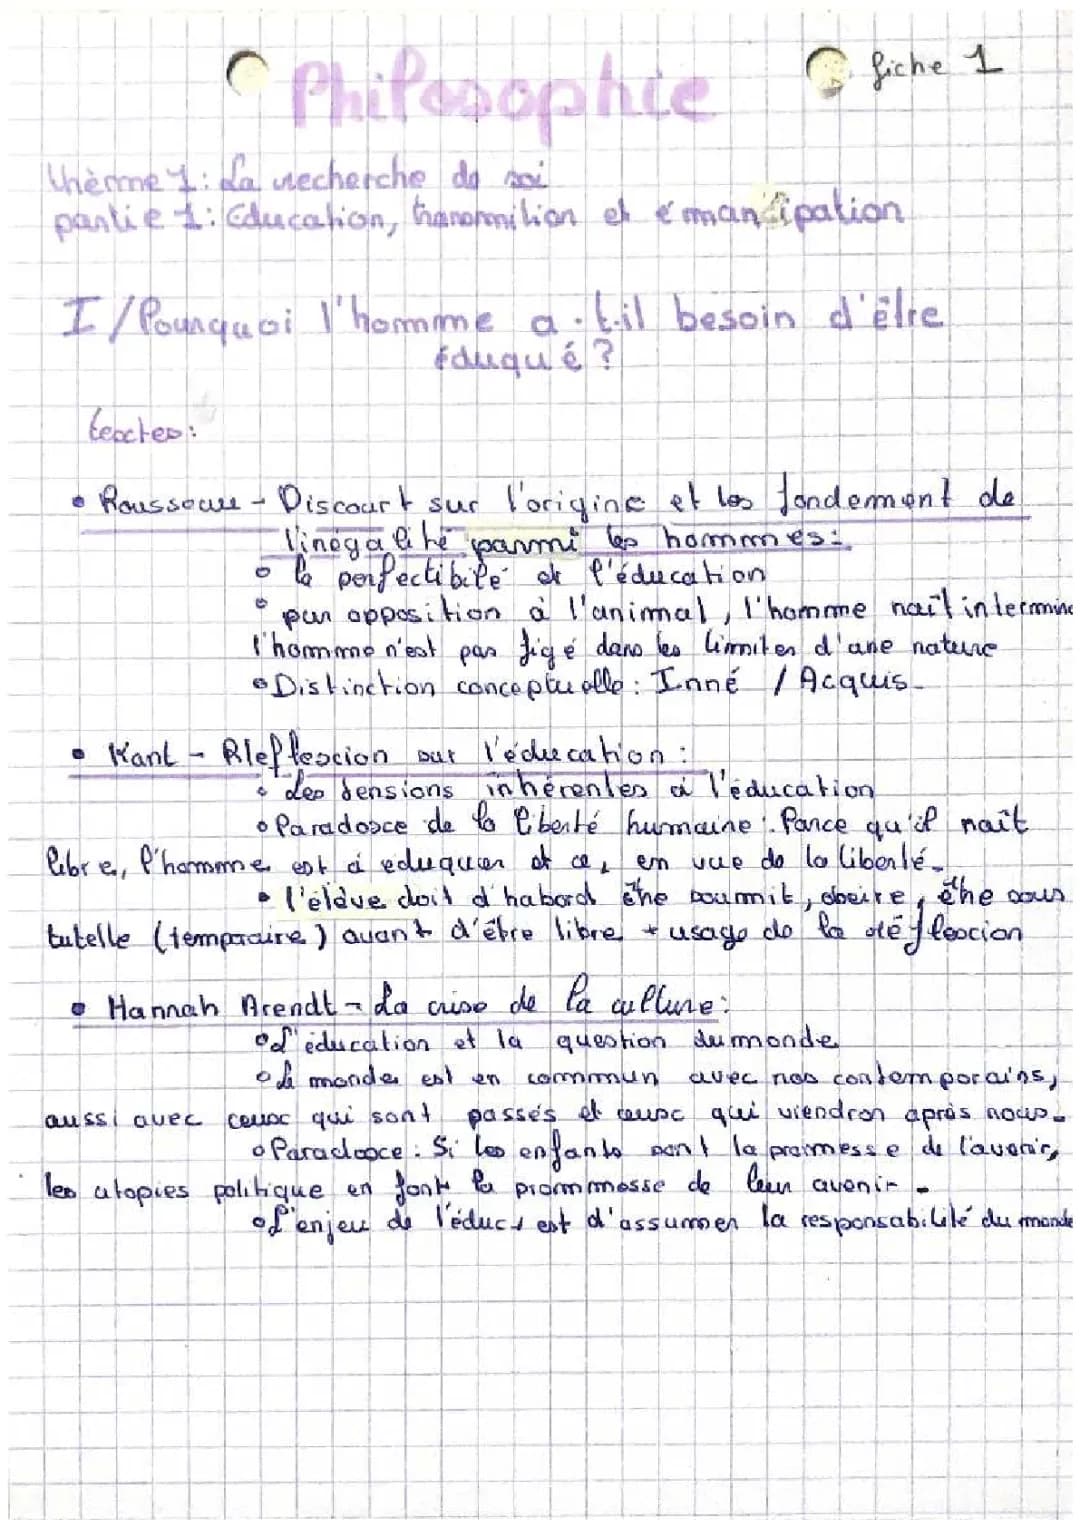 fiche 1
Philosophie
thèrme 1: La recherche de soi
partie 1: Education, transmition et émancipation
I/Pourquoi l'homme a-t-il besoin d'être
éduqué ?
textes:
• Rousseau - Discourt sur l'origine et les fondement de
l'inégalité parmi les hommes:
° la perfectibilé et l'éducation
° par opposition à l'animal, l'homme naît interminé
l'homme n'est pas figé dans les limites d'une nature
° Distinction conceptuelle: Inné / Acquis.
• Kant - Rleflexion sur l'éducation:
° Les tensions inhérentes à l'éducation
° Paradoxe de la liberté humaine: Parce qu'il naît
libre, l'homme est à eduquer et ce, en vue de la liberté.
• l'élève doit d'habord être soumit, obeire, être sous
tutelle (temporaire) avant d'être libre + usage de la réflexcion
• Hannah Arendt - La crise de la culture:
° L'éducation et la question du monde
° Le monde est en commun avec nos contemporains,
aussi avec ceux qui sont passés et ceux qui viendron après nous.
° Paradoxe: Si les enfants sont la promesse de l'avenir,
les utopies politique en font la prommesse de leur avenir.
° L'enjeu de l'éduc+ est d'assumer la responsabilité du monde